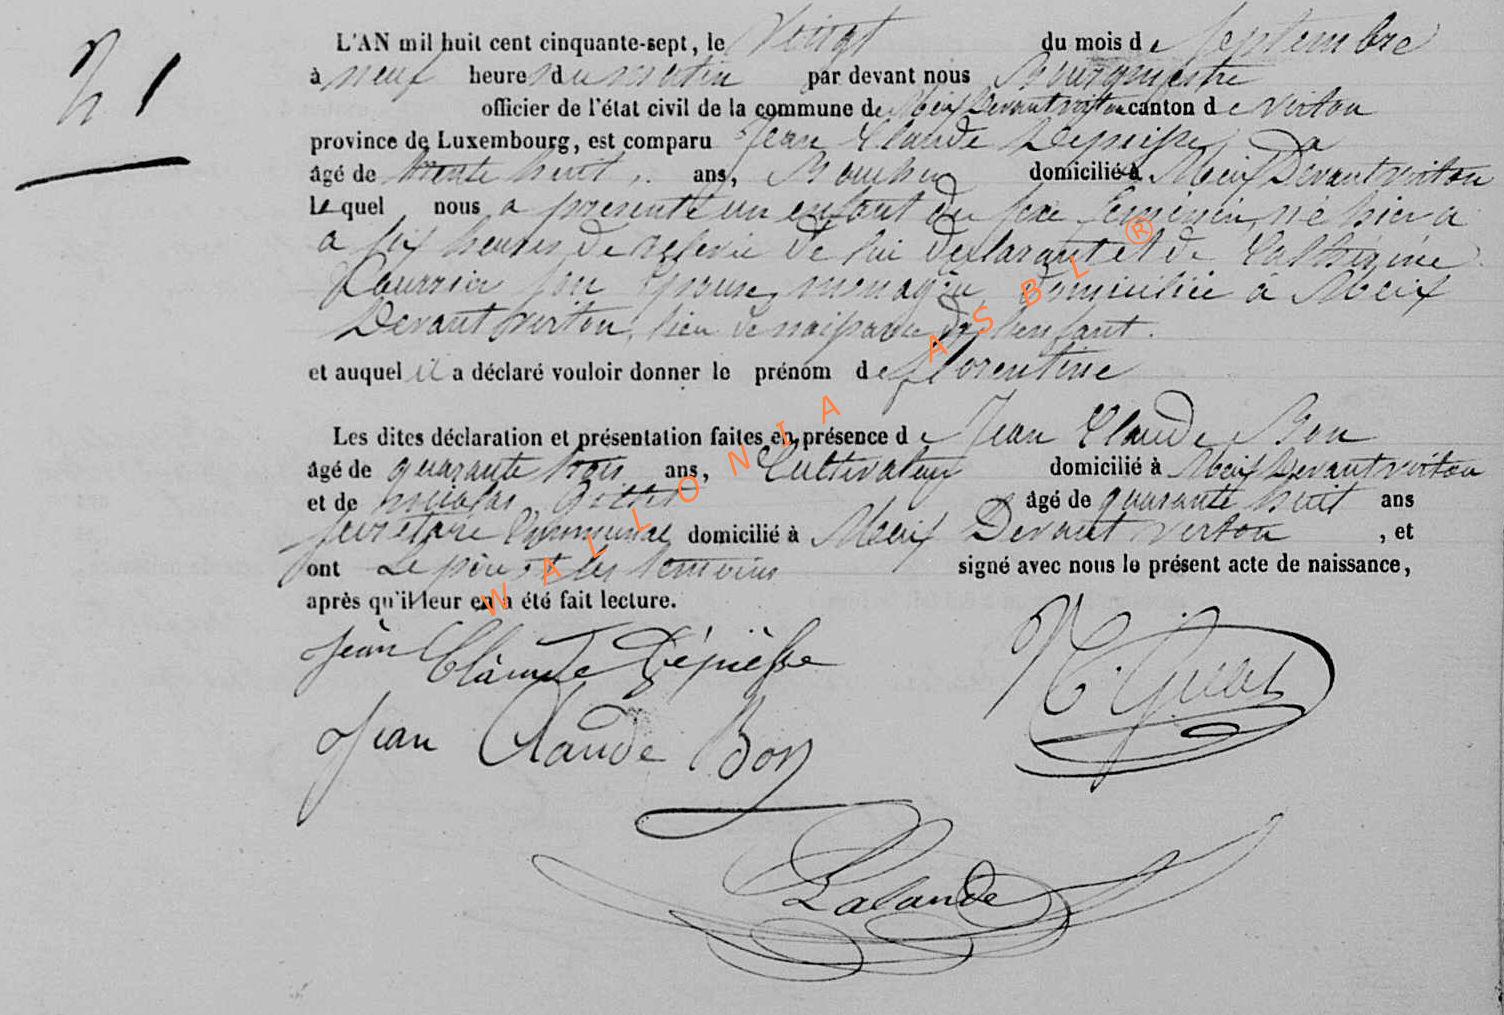 21
L'AN mil huit cent cinquante-sept, le Vingt du mois de Septembre
à neuf heures du matin par devant nous Bourgmestre
officier de l'état civil de la commune de Meix Devant virton canton de virton
province de Luxembourg, est comparu Jean Claude
âgé de trente huit ans, domicilié à Meix Devant virton
lequel nous a présenté un enfant du sexe féminin, né hier a
a six heures de relevée de lui déclarant et de Catherine
son épouse, ménagère, domiciliée à Meix
Devant virton, lieu de naissance de l'enfant.
et auquel il a déclaré vouloir donner le prénom de florentine
Les dites déclaration et présentation faites en présence de Jean Claude Bon
âgé de quarante trois ans, Cultivateur domicilié à Meix Devant virton
et de nicolas âgé de quarante huit ans
secrétaire Communal domicilié à Meix Devant virton, et
ont Le père et les témoins signé avec nous le présent acte de naissance,
après qu'il leur en a été fait lecture.
Jean Claude Dépiesse
Jean Claude Bon
Lalande
WALLONIA ASBL ®